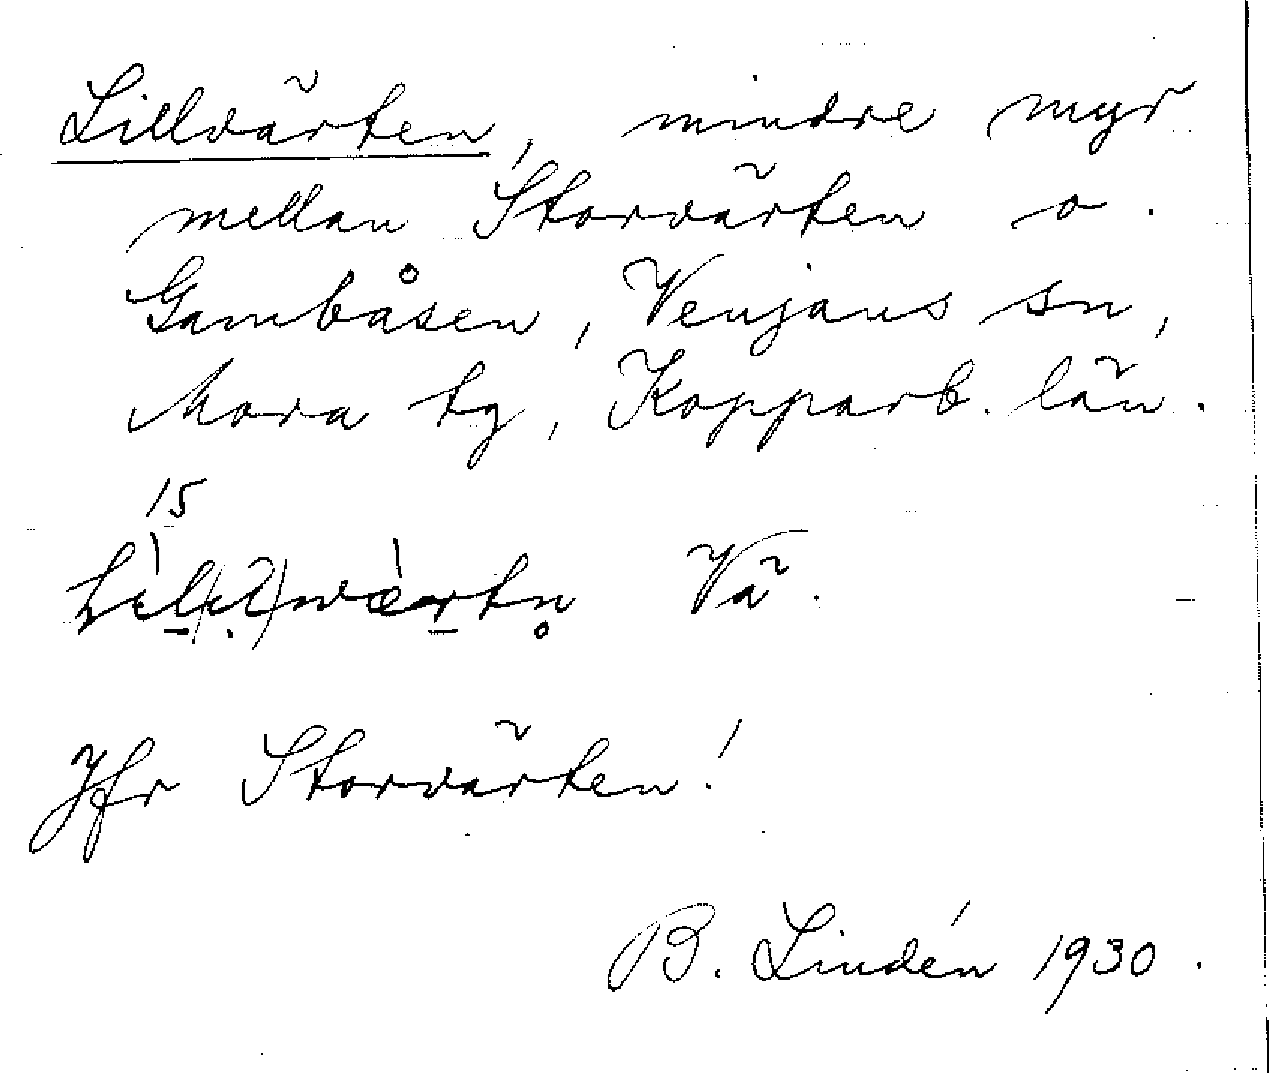 Lillvärten, mindre myr
mellan Storvärten o.
Gambåsen, Venjans sn,
Mora tg, Kopparb. län.
15
Vä.
Jfr Storvärten!
B. Lindén 1930.